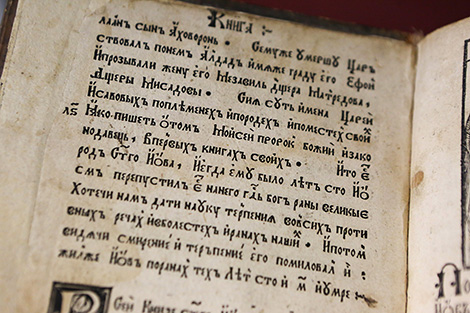 Книга :~
лаан сын Аховоронь · Семуже умершу Цар
ствовал понем Алдад именже граду его Ефой
Ипрозывали жену его Незавиль дщера Матредова,
Дщеры Мисадовы · Сия суть имена Царей
Исавовых поплеменех ипородех ипоместех свой
Яко пишеть ѡтом Мойсей пророк божий изако
нодавець, Впервых книгах своихъ · Ито
род С҃тго Иѡва, Иегда ему было лѣтъ сто
смъ перепустил нанего г҃дь богъ раны великые
Хотечи нам дати науку терпения вовсих проти
вных речах иволестех иранах наши · Ипотом
видячи смирение и терпѣние его помиловал и :
жилже Иѡвъ поранах тех лѣт сто и м҃ иумре :~
Сей Книзе